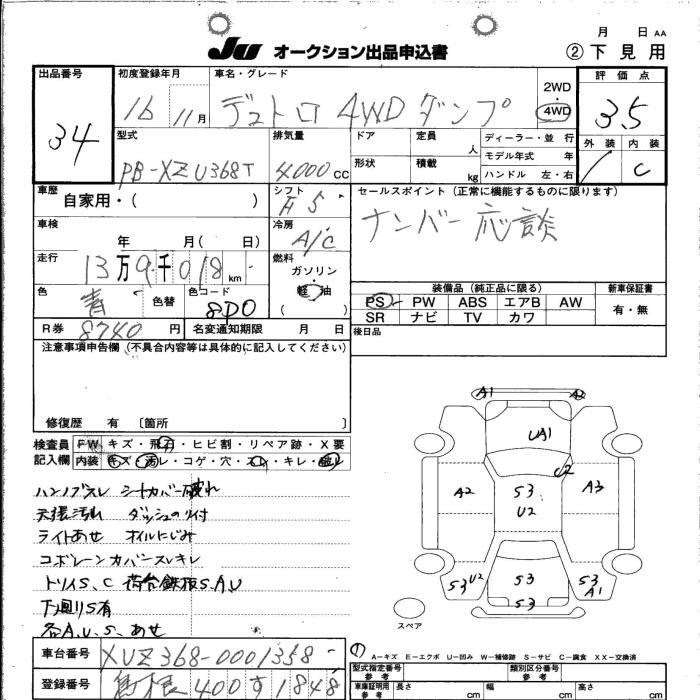 月 日 AA
JU オークション出品申込書 ② 下見用
出品番号 初度登録年月 車名・グレード 2WD ・ 4WD 評価点
34 16 11月 デュトロ 4WD ダンプ 3.5
型式 排気量 ドア 定員 人 ディーラー・並 行 外装 内装
PB-XZU368T 4000 CC 形状 積載 kg モデル年式 年 C
ハンドル 左・右
車歴 シフト セールスポイント(正常に機能するものに限ります)
自家用・( ) F5 ナンバー応談
車検 年 月( 日) 冷房 A/C
走行 13万9千018km 燃料 ガソリン 軽油 ( )
色 青 色替 色コード 8P0
装備品(純正品に限る) 新車保証書
PS PW ABS エアB AW 有・無
SR ナビ TV カワ
R券 8740円 名変通知期限 月 日 後日品
注意事項申告欄(不具合内容等は具体的に記入してください)
修復歴 有 〔箇所 〕
検査員 FW キズ・飛石・ヒビ割・リペア跡・X要
記入欄 内装 キズ・汚レ・コゲ・穴・スレ・キレ・破レ
ハンドルスレ シートカバー破れ
天張汚れ ダッシュのり付
ライトあせ オイルにじみ
コボレーンカバースレキレ
トリイS、C 荷台鉄板S.A.U
下廻りS有
各A.U.S、あせ
A1 A2
UA1
U2
A2 S3 A3
U2
S3U2 S3 S3
S3 A1
スペア
A-キズ E-エクボ U-凹み W-補修跡 S-サビ C-腐食 XX-交換済
車台番号 XUZ368-0001358
型式指定番号 参考 類別区分番号 参考
登録番号 島根400す1848
車庫証明用 参考 長さ cm 幅 cm 高さ cm